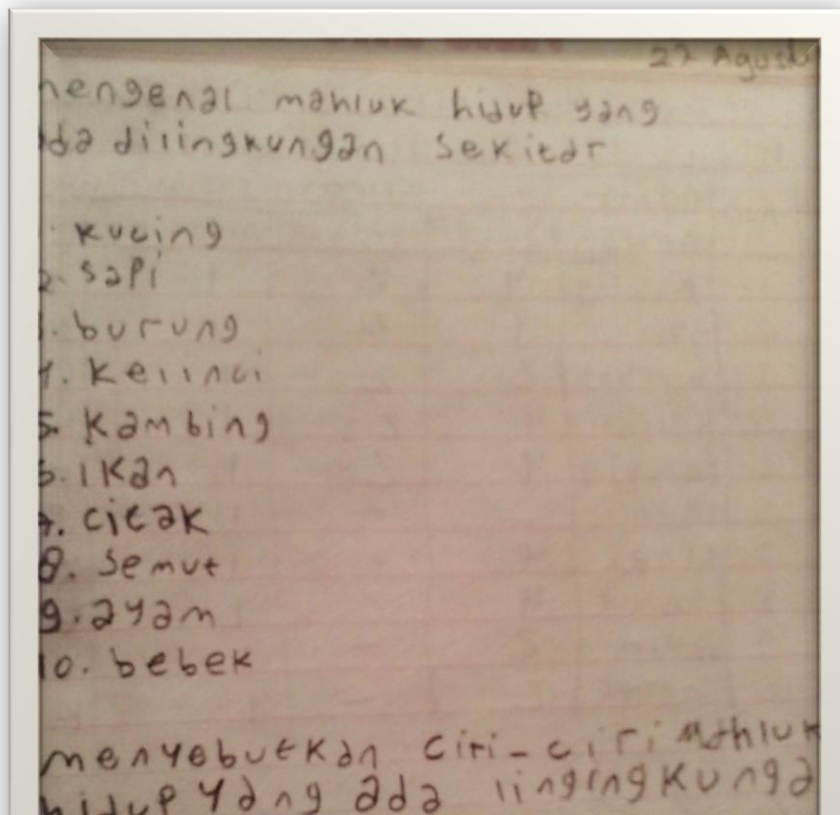 27 Agustu
mengenal mahluk hidup yang
ada dilingkungan sekitar
1. kucing
2. sapi
3. burung
4. kelinci
5. kambing
6. ikan
7. cicak
8. semut
9. ayam
10. bebek
menyebutkan ciri-ciri mahluk
hidup yang ada lingingkunga